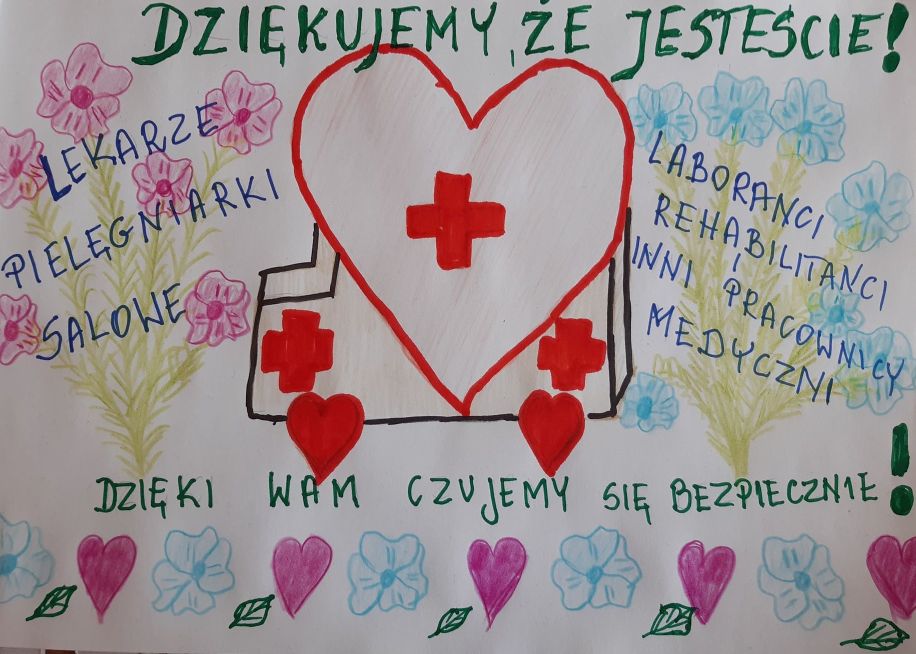 DZIĘKUJEMY, ŻE JESTEŚCIE!
LEKARZE
PIELĘGNIARKI
SALOWE
LABORANCI
REHABILITANCI
I
INNI PRACOWNICY
MEDYCZNI
DZIĘKI WAM CZUJEMY SIĘ BEZPIECZNIE!